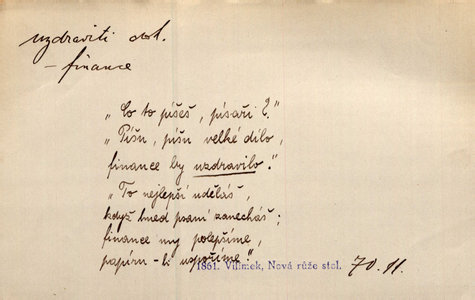 uzdraviti dok.
– finance
„Co to píšeš, písaři?"
„Píšu, píšu velké dílo,
finance by uzdravilo."
„To nejlepší uděláš,
když hned psaní zanecháš;
finance my polepšíme,
papíru-li uspoříme."
1861. Vilímek, Nová růže stol. 70. 11.